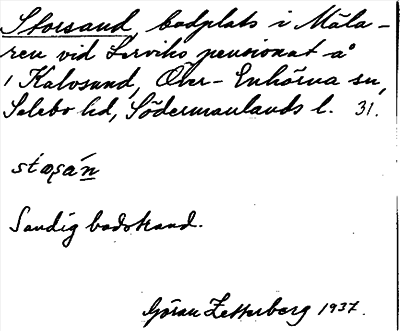 Storsand, badplats i Mäla-
ren vid Lerviks pensionat å
/ Kalvsund, Över-Enhörna sn,
Selebo hd, Södermanlands l. 31.
Sandig badstrand.
Göran Zetterberg 1937.